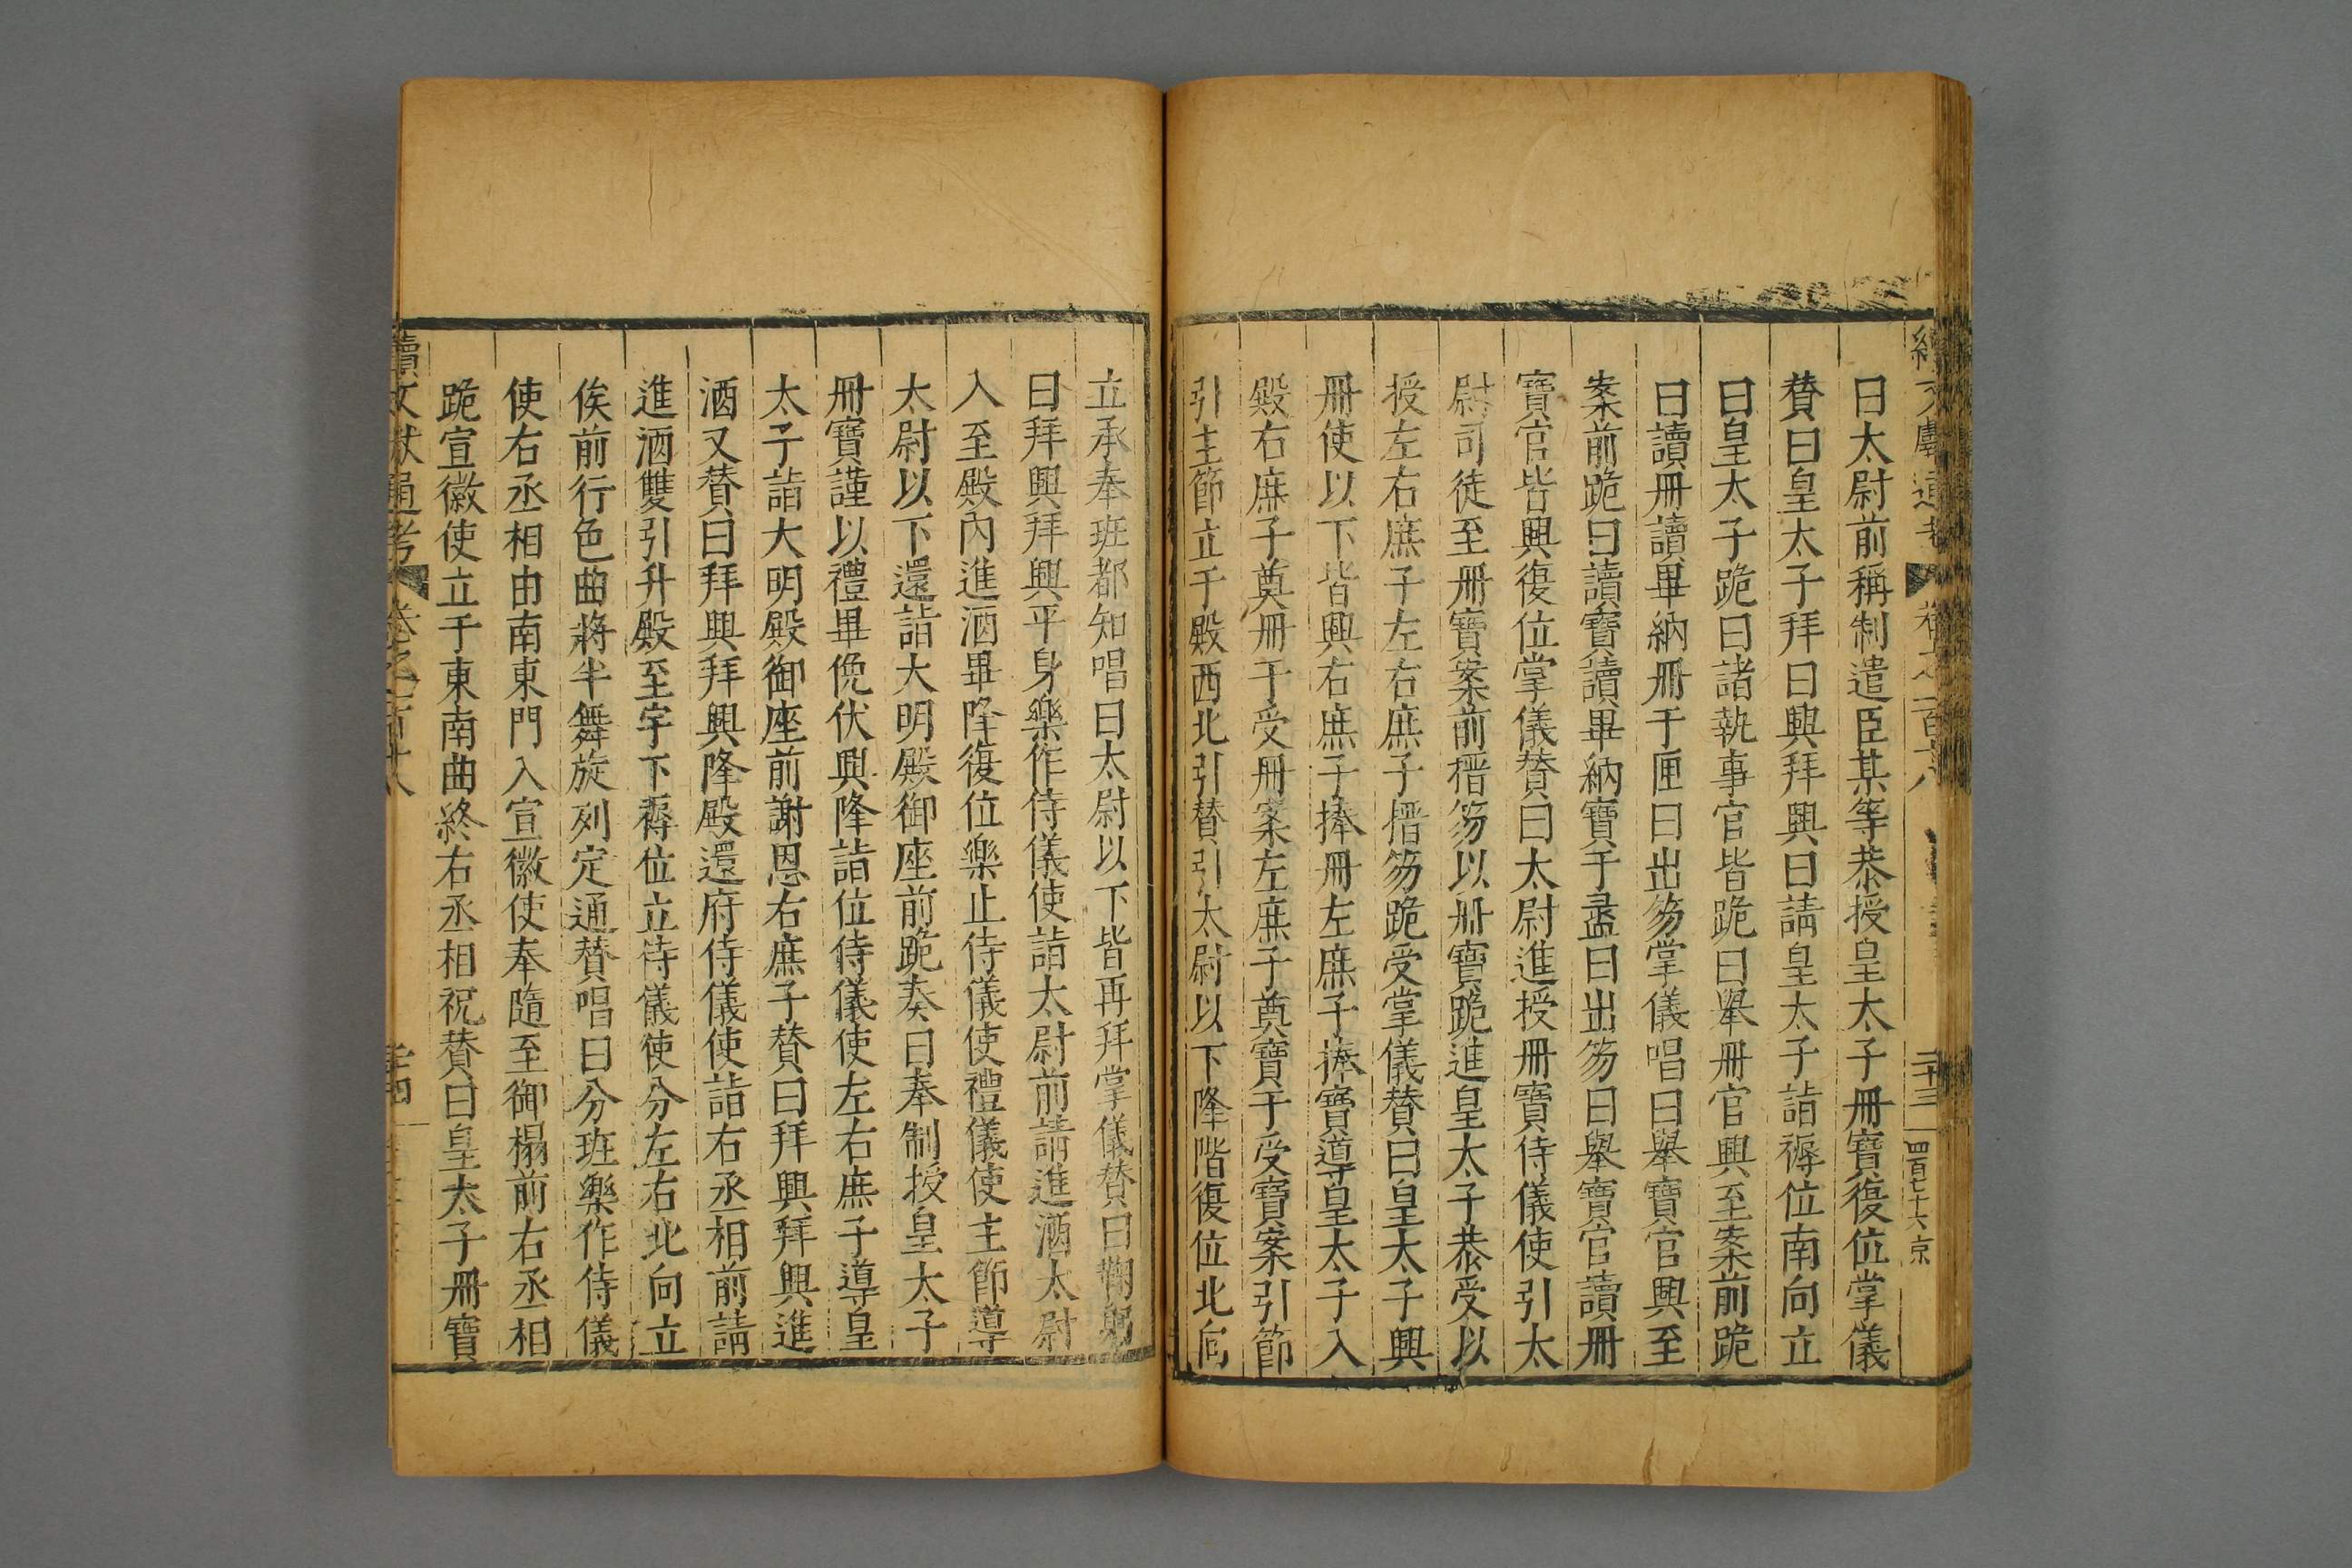 曰太尉前稱制遣臣某等恭授皇太子冊寶復位掌儀
賛曰皇太子拜曰興拜興曰請皇太子詣褥位南向立
曰皇太子跪曰諸執事官皆跪曰舉冊官興至案前跪
曰讀冊讀畢納冊于匣曰出笏掌儀唱曰舉寶官興至
案前跪曰讀寶讀畢納寶于盝曰出笏曰舉寶官讀冊
寶官皆興復位掌儀賛曰太尉進授冊寶侍儀使引太
尉司徒至冊寶案前搢笏以冊寶跪進皇太子恭受以
授左右庶子左右庶子搢笏跪受掌儀賛曰皇太子興
冊使以下皆興右庶子捧冊左庶子捧寶導皇太子入
殿右庶子奠冊于受冊案左庶子奠寶于受寶案引節
引主節立于殿西北引賛引太尉以下降階復位北向
立承奉班都知唱曰太尉以下皆再拜掌儀賛曰鞠躬
曰拜興拜興平身樂作侍儀使詣太尉前請進酒太尉
入至殿內進酒畢降復位樂止侍儀使禮儀使主節導
太尉以下還詣大明殿御座前跪奏曰奉制授皇太子
冊寶謹以禮畢俛伏興降詣位侍儀使左右庶子導皇
太子詣大明殿御座前謝恩右庶子賛曰拜興拜興進
酒又賛曰拜興拜興降殿還府侍儀使詣右丞相前請
進酒雙引升殿至宇下褥位立侍儀使分左右北向立
俟前行色曲將半舞旋列定通賛唱曰分班樂作侍儀
使右丞相由南東門入宣徽使奉隨至御榻前右丞相
跪宣徽使立于東南曲終右丞相祝賛曰皇太子冊寶
續文獻通考 卷之一百十八